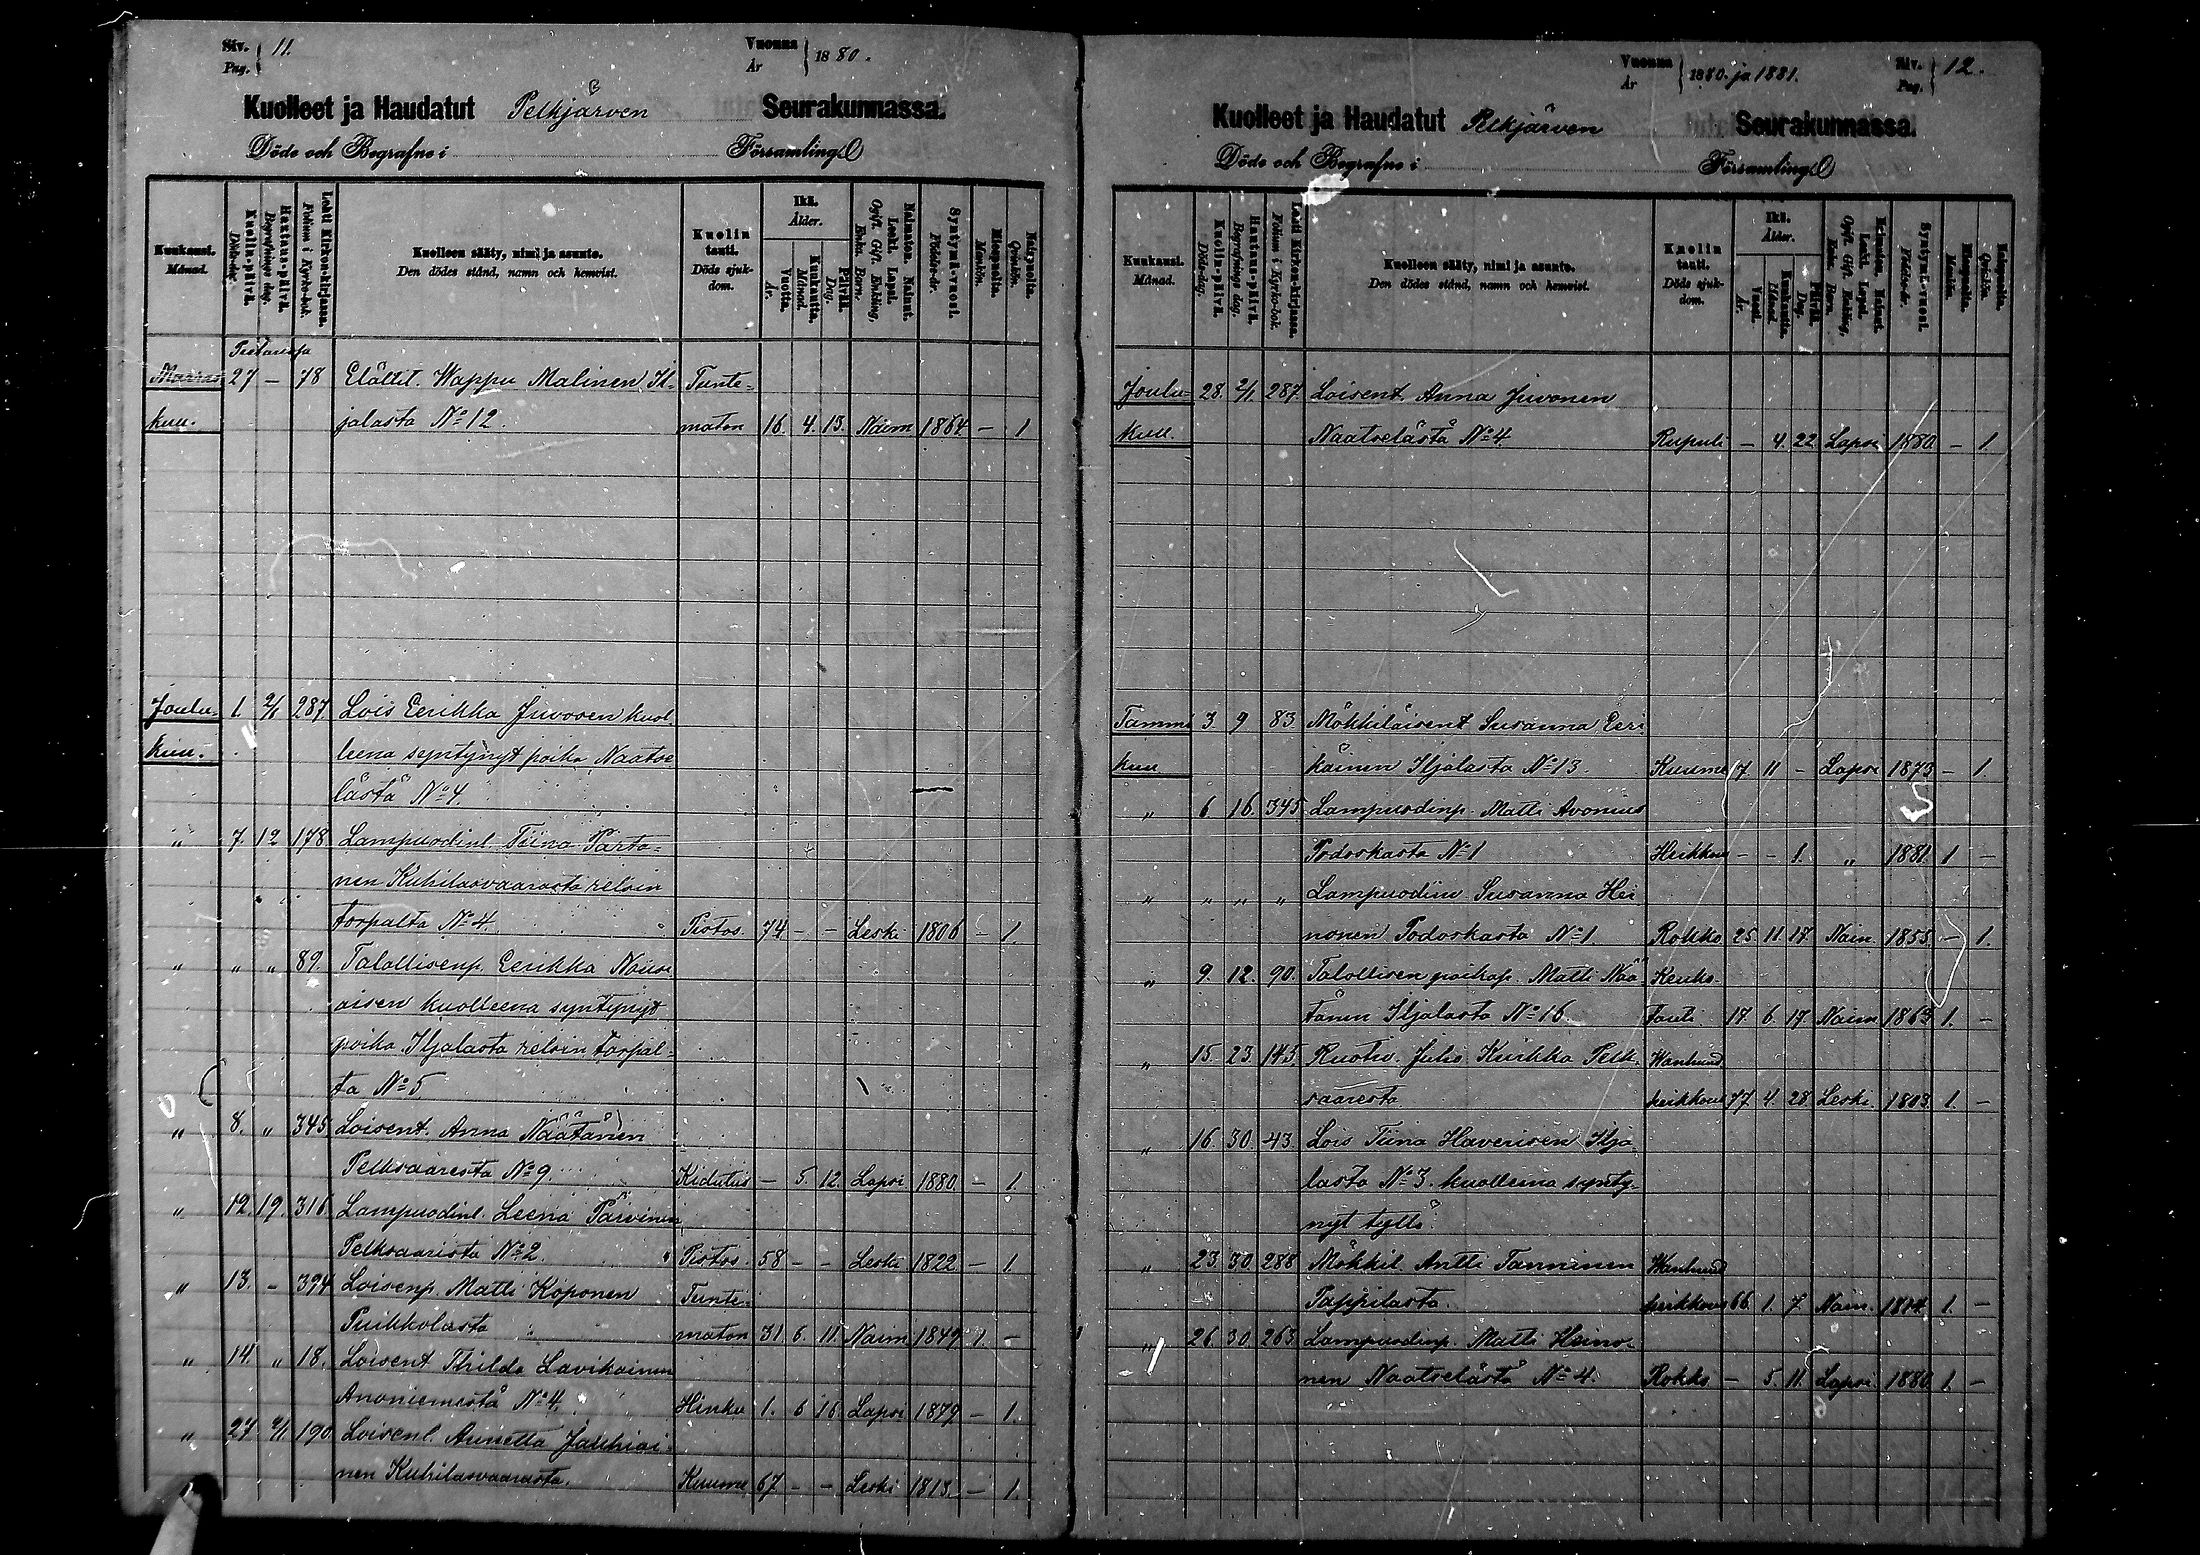 Siv. Pag. 11.
Vuonna År 1880.
Kuolleet ja Haudatut Pelkjärven Seurakunnassa.
Döde och Begrafne i Församling
Kuukausi. Månad.
Kuolin-päivä. Döds-dag.
Hautaus-päivä. Begrafnings dag.
Lehti Kirkon-kirjassa. Folium i Kyrko-bok.
Kuolleen sääty, nimi ja asunto. Den dödes stånd, namn och hemvist.
Kuolin tauti. Döds sjuk-dom.
Ikä. Ålder.
Vuotta. År.
Kuukautta. Månad.
Päivää. Dag.
Naimaton. Nainut. Leski. Lapsi. Ogift. Gift. Enkling, Enka. Barn.
Syntymä-vuosi. Födelse-år.
Miespuolia. Mankön.
Naispuolia. Qvinkön.
27 – 78 Elättit. Wappu Malinen Il- Tunte-
kuu. jalasta No 12. maton 16. 4. 13. Naim 1864 – 1
Joulu- 1. 2/1 287 Lois Eerikka Juvosen kuol-
kuu. leena syntynyt poika Naatse
lästä No 4. —
„ 7. 12 178 Lampuodinl. Tiina Parta-
nen Kuhilasvaarasta
torpalta No 4. Pistos. 74 – – Leski 1806 – 1.
„ „ „ 89. Talollisenp. Eerikka Nous
aisen kuolleena syntynyt
poika Iljalasta torpal-
ta No 5
„ 8. „ 345 Loisent. Anna Näätänen
Pelksaaresta No 9. Kidutus – 5. 12. Lapsi 1880 – 1
„ 12. 19. 316 Lampuodinl. Leena Parvinen
Pelksaarista No 2. Pistos. 58 – – Leski 1822 – 1
„ 13. – 394 Loisenp. Matti Koponen Tunte-
Puikkolasta maton 31. 6. 11. Naim 1849 1. –
„ 14. „ 18. Loisent Thilda Lavikainen
No 4. Hinku 1. 6 16 Lapsi 1879 – 1.
„ 27. 2/1 190 Loisenl. Annetta Jauhiai-
nen Kuhilasvaarasta. Kuume 67 – – Leski 1813. – 1.
Vuonna År 1880. ja 1881.
Siv. Pag. 12.
Kuolleet ja Haudatut Pelkjärven Seurakunnassa.
Döde och Begrafne i Församling
Kuukausi. Månad.
Kuolin-päivä. Döds-dag.
Hautaus-päivä. Begrafnings dag.
Lehti Kirkon-kirjassa. Folium i Kyrko-bok.
Kuolleen sääty, nimi ja asunto. Den dödes stånd, namn och hemvist.
Kuolin tauti. Döds sjuk-dom.
Ikä. Ålder.
Vuotta. År.
Kuukautta. Månad.
Päivää. Dag.
Naimaton. Nainut. Leski. Lapsi. Ogift. Gift. Enkling, Enka. Barn.
Syntymä-vuosi. Födelse-år.
Miespuolia. Mankön.
Naispuolia. Qvinkön.
Joulu- 28. 2/1. 287 Loisent. Anna Juvonen
kuu. Naatselästä No 4 Rupuli – 4. 22 Lapsi 1880. – 1.
Tammi 3 9 83 Mökkiläisent Susanna Eeri-
kuu käinen Iljalasta No 13. Kuume 7 11 – Lapsi 1873 – 1
„ 6 16. 345 Lampuodinp. Matti Avonius
Podoskasta No 1 Heikkous – – 1. „ 1881 1 –
„ „ „ „ Lampuodin Susanna Hei
nonen Podoskasta No 1 Rokko 25 11. 17. Nain. 1855. – 1.
„ 9. 12. 90. Talollisen poikap. Matti Nää- Keuko-
tänen Iljalasta No 16. tauti. 17 6 17 Naim. 1863 1. –
„ 15. 23. 145. Ruotiv. Juho Kuikka Pelk- Wanhuud.
saaresta. heikkous 77 4. 28 Leski. 1803. 1. –
„ 16. 30. 43. Lois Tiina Haverisen Ilja-
lasta No 3. kuolleena synty-
nyt tyttö.
„ 23. 30. 288 Mökkil Antti Tanninen Wanhuud
Tappilasta. heikkous 66. 1. 7. Nain. 1814. 1. –
„ 26. 30. 263. Lampuodinp. Matti Heino-
nen Naatselästä No 4. Rokko – 5. 11. Lapsi 1880 1. –